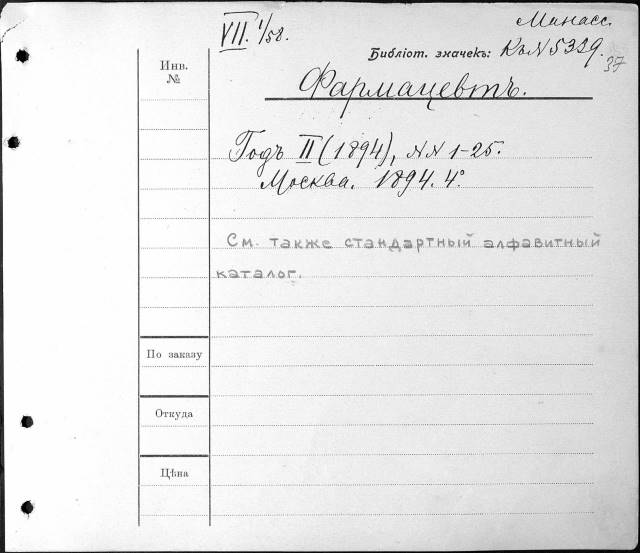 VII. 1/58.
Минасс.
Библіот. значекъ: К. №5329.
37
Инв.
№
Фармацевтъ.
Годъ II (1894), NN 1-25.
Москва. 1894. 4°.
См. также стандартный алфавитный
каталог.
По заказу
Откуда
Цѣна